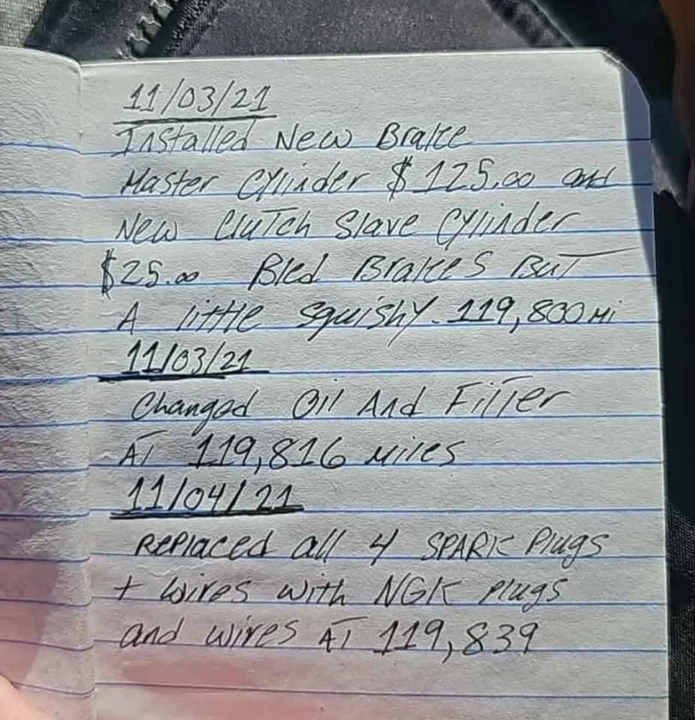 11/03/21
Installed New Brake
Master Cylinder $125.00 and
New Clutch Slave Cylinder
$25.00 Bled Brakes But
A little squishy. 119,800 mi
11/03/21
Changed Oil And Filter
AT 119,816 miles
11/04/21
Replaced all 4 SPARK Plugs
+ Wires with NGK Plugs
and wires AT 119,839